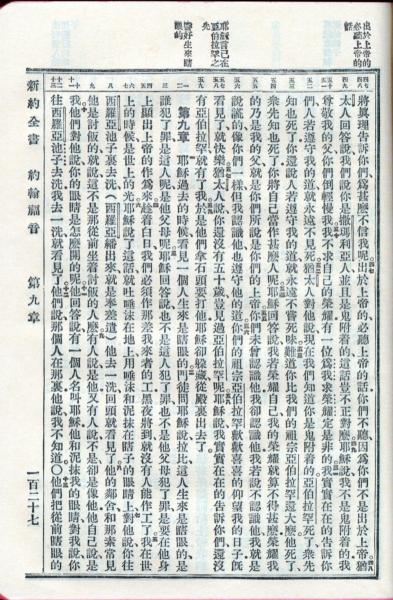 出於上帝的
必聽上帝的
話
耶穌言己在
亞伯拉罕之
先
醫好生來瞎
眼的
將真理告訴你們、爲甚麼不信我呢出於上帝的必聽上帝的話你們不聽因爲你們不是出於上帝猶
太人回答說我們說你是撒瑪利亞人並且是鬼附着的這話豈不正對麼耶穌說我不是鬼附着的我
尊敬我的父你們倒輕慢我我不求自己的榮耀有一位爲我求榮耀定是非的我實實在在的告訴你
們人若遵守我的道就永遠不見死猶太人對他說現在我們知道你是鬼附着的亞伯拉罕死了衆先
知也死了你還說人若遵守我的道就永遠不嘗死味難道你比我們的祖宗亞伯拉罕還大麼他死了
衆先知也死了你將自己當作甚麼人呢耶穌回答說我若榮耀自己我的榮耀就算不得甚麼榮耀我
的乃是我的父就是你們所說是你們的上帝你們未曾認識他我卻認識他我若說不認識他我就是
說謊的像你們一樣但我認識他也遵守他的道你們的祖宗亞伯拉罕歡歡喜喜的仰望我的日子旣
看見了就快樂猶太人說你還沒有五十歲豈見過亞伯拉罕呢耶穌說我實實在在的告訴你們還沒
有亞伯拉罕就有了我於是他們拿石頭要打他耶穌卻躱藏從殿裏出去了
第九章 耶穌過去的時候看見一個人生來是瞎眼的門徒問耶穌說拉比這人生來是瞎眼的是
誰犯了罪是這人呢是他父母呢耶穌回答說也不是這人犯了罪也不是他父母犯了罪是要在他身
上顯出上帝的作爲來趁着白日我們必須作那差我來者的工黑夜將到就沒有人能作工了我在世
上的時候是世上的光耶穌說了這話就吐唾沫在地上用唾沫和泥抹在瞎子的眼睛上對他說你往
西羅亞池子裏去洗(西羅亞繙出來就是奉差遣)他去一洗回頭就看見了他的鄰舍和那素常見
他是討飯的就說這不是那從前坐着討飯的人麼有人說是他又有人說不是卻是像他他自己說是
我他們對他說你的眼睛是怎麼開的呢他回答說有一個人名叫耶穌他和泥抹我的眼睛對我說你
往西羅亞池子去洗我去一洗就看見了他們說那個人在那裏他說我不知道○他們把從前瞎眼的
新約全書 約翰福音 第九章 一百二十七